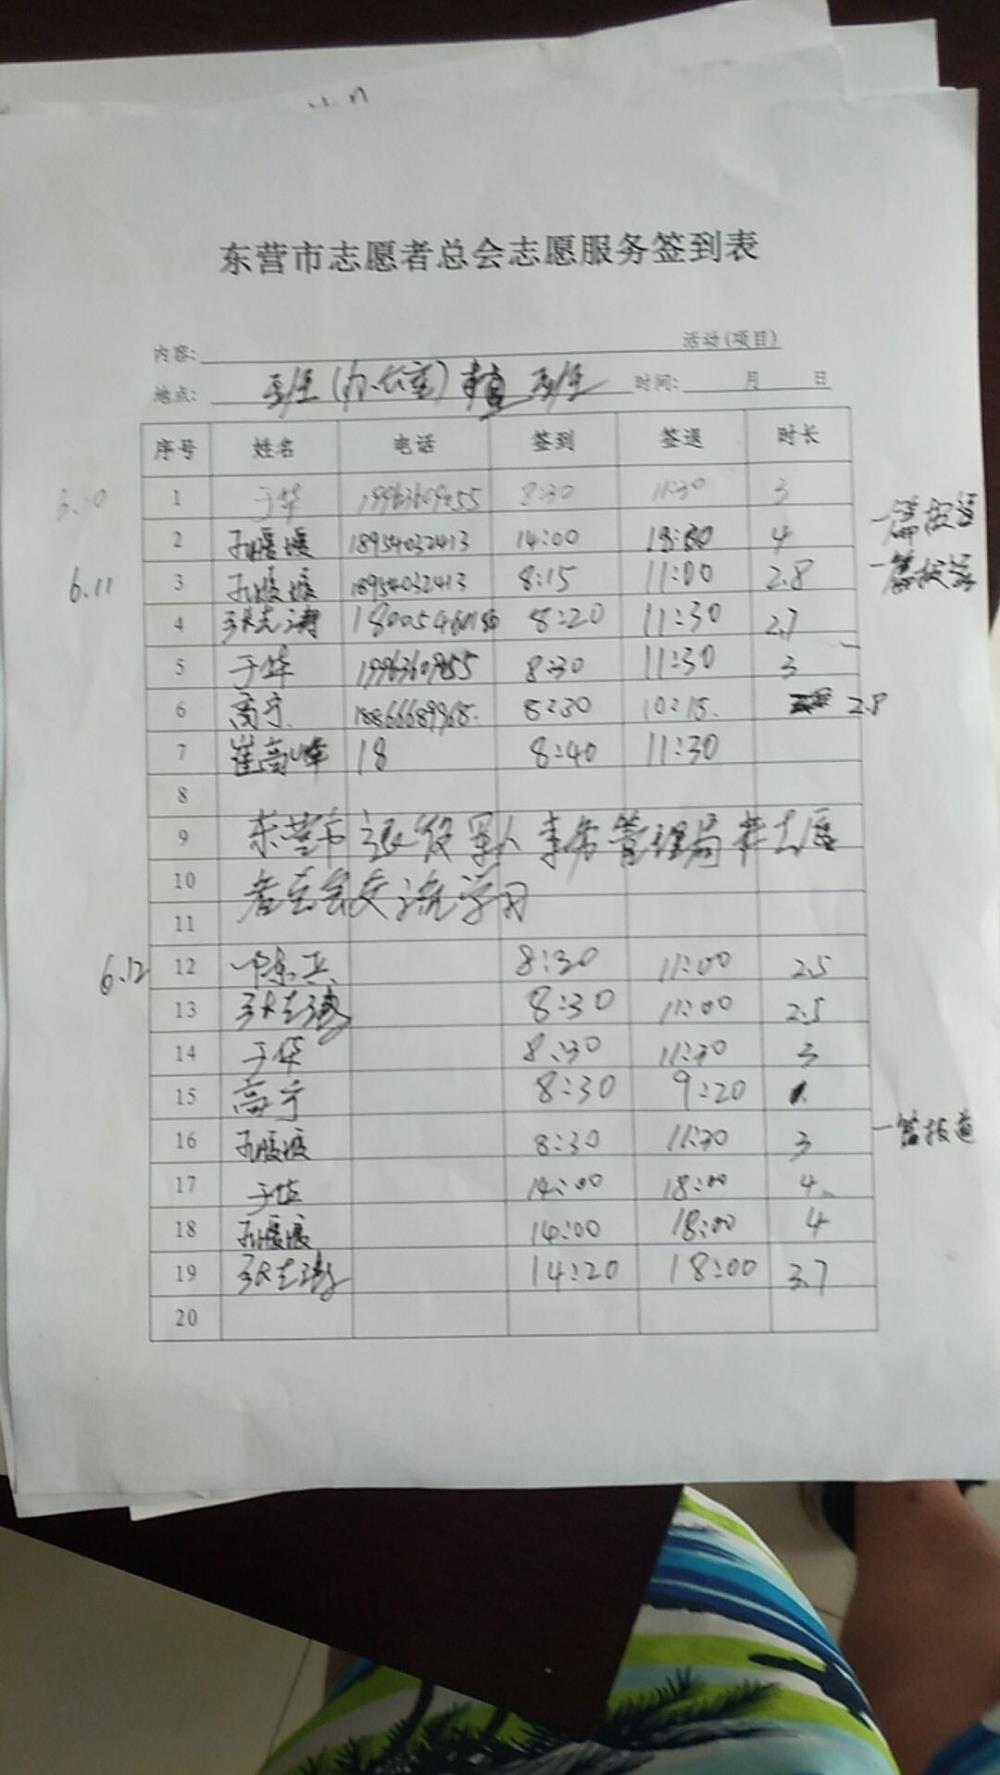 东营市志愿者总会志愿服务签到表
内容: 活动(项目)
地点: 时间: 月 日
序号 姓名 电话 签到 签退 时长
6.10 1 于华 19963609255 8:30 11:30 3
2 孔媛媛 18954032413 14:00 18:00 4
6.11 3 孔媛媛 18954032413 8:15 11:00 2.8
4 张志涛 8:20 11:30 2.7
5 于华 8:30 11:30 3
6 高宁 8:30 10:15 2.8
7 崔高峰 18 8:40 11:30
8
9 东营市退役军人事务管理局来志愿
10 者总会交流学习
11
6.12 12 8:30 11:00 2.5
13 张志涛 8:30 11:00 2.5
14 于华 8:30 11:30 3
15 高宁 8:30 9:20 1
16 孔媛媛 8:30 11:30 3 一篇报道
17 于华 14:00 18:00 4
18 孔媛媛 14:00 18:00 4
19 张志涛 14:20 18:00 3.7
20